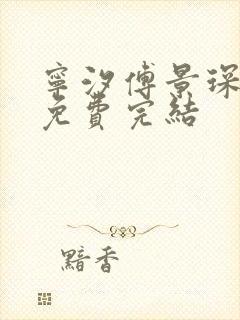 寧汐傅景琛
免費完結
黯香